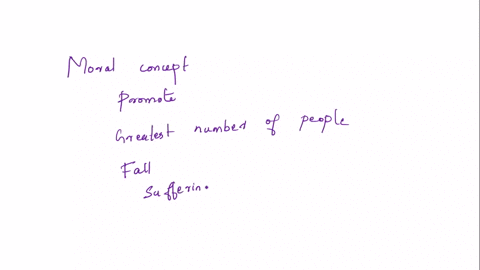 Moral concept
Promote
Greatest number of people
Fall
Sufferin